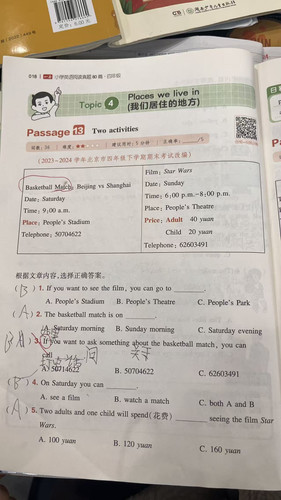 018 一本 小学英语阅读真题 80 篇 · 四年级
Topic 4 Places we live in
(我们居住的地方)
Passage 13 Two activities
词数: 56 难度: ★★ 建议用时: 5 分钟 正确率: /5
(2023–2024 学年北京市四年级下学期期末考试选编)
Basketball Match: Beijing vs Shanghai
Date: Saturday
Time: 9:00 a.m.
Place: People's Stadium
Telephone: 50704622
Film: Star Wars
Date: Sunday
Time: 6:00 p.m.–8:00 p.m.
Place: People's Theatre
Price: Adult 40 yuan
Child 20 yuan
Telephone: 62603491
根据文章内容,选择正确答案。
(B) 1. If you want to see the film, you can go to ______.
A. People's Stadium B. People's Theatre C. People's Park
(A) 2. The basketball match is on ______.
A. Saturday morning B. Sunday morning C. Saturday evening
3. If you want to ask something about the basketball match, you can
call
问 关于
A. 50714622 B. 50704622 C. 62603491
(B) 4. On Saturday you can ______.
A. see a film B. watch a match C. both A and B
(A) 5. Two adults and one child will spend(花费) ______ seeing the film Star
Wars.
A. 100 yuan B. 120 yuan C. 160 yuan